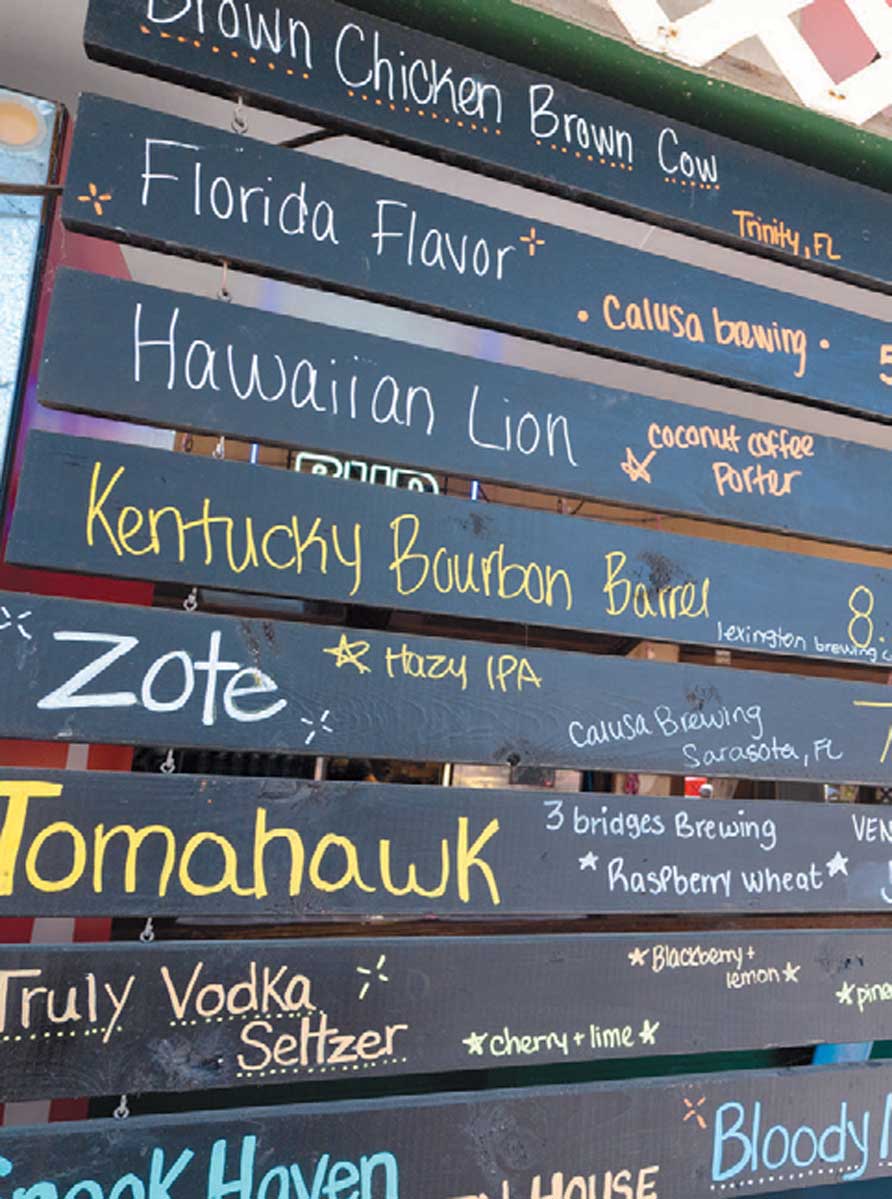 Brown Chicken Brown Cow
Trinity, FL
Florida Flavor
• Calusa brewing •
5
Hawaiian Lion
coconut coffee
Porter
BUD
Kentucky Bourbon Barrel
8.
lexington brewing c
Zote
Hazy IPA
7
Calusa Brewing
Sarasota, FL
Tomahawk
3 bridges Brewing
VEN
Raspberry wheat
Truly Vodka
Seltzer
Blackberry +
lemon
pine
cherry + lime
Bloody
Haven
HOUSE